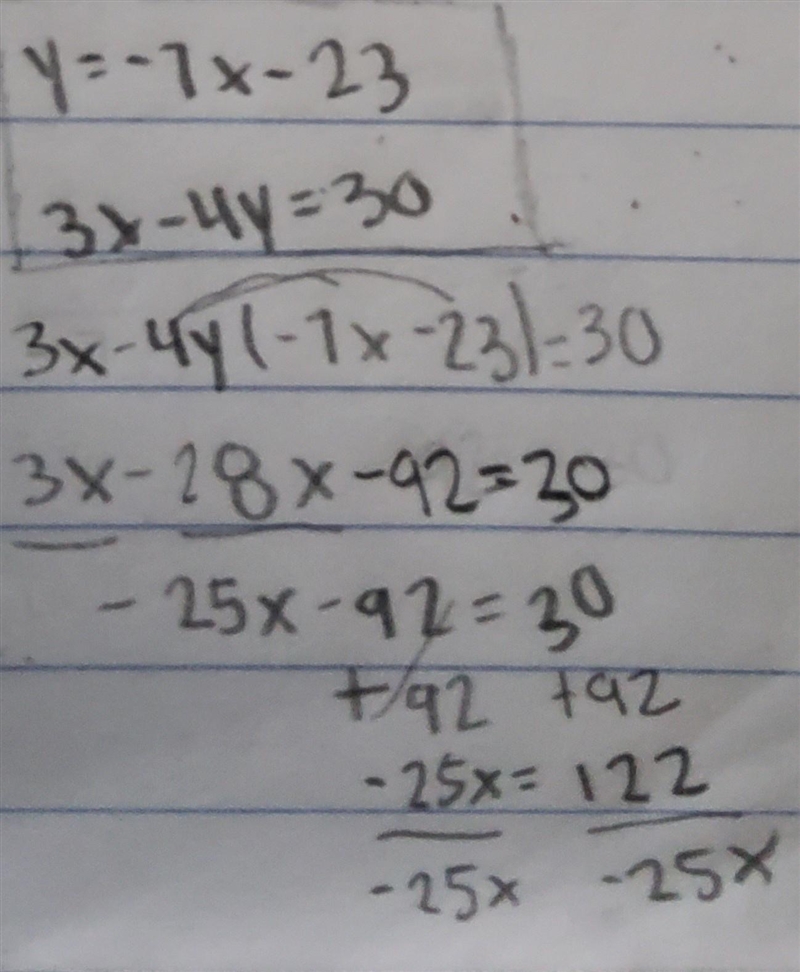 y=-7x-23
3x-4y=30
3x-4y(-7x-23)=30
3x-28x-92=30
-25x-92=30
+92 +92
-25x=122
-25x -25x